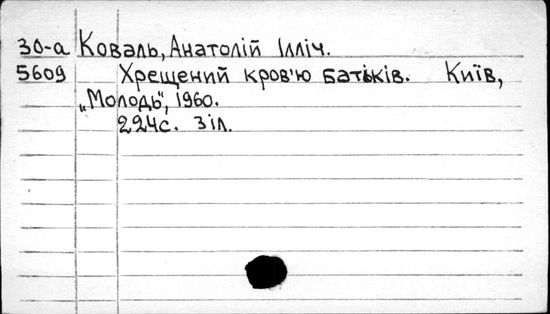 30-а Коваль, Анатолій Ілліч.
5609 Хрещений кров'ю батьків. Київ,
„Молодь", 1960.
224с. 3 іл.